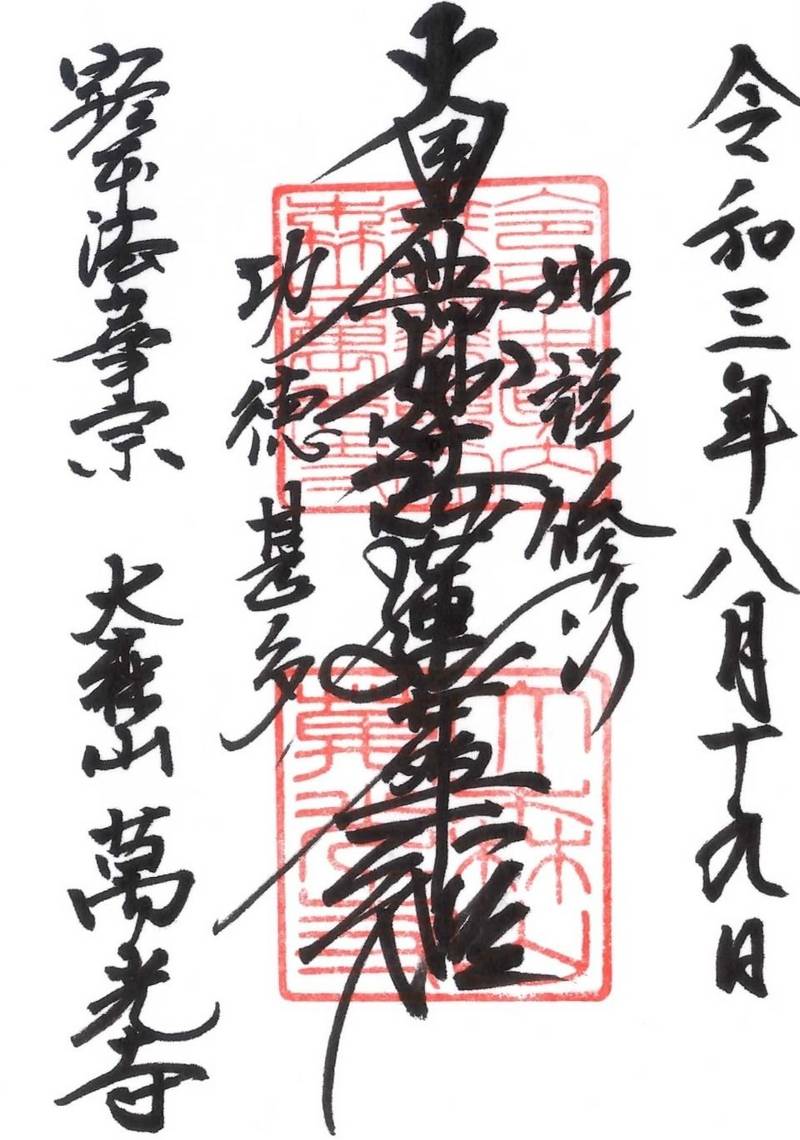 令和三年八月十九日
如説修行
南無妙法蓮華経
功徳甚多
顕本法華宗 大森山 萬光寺